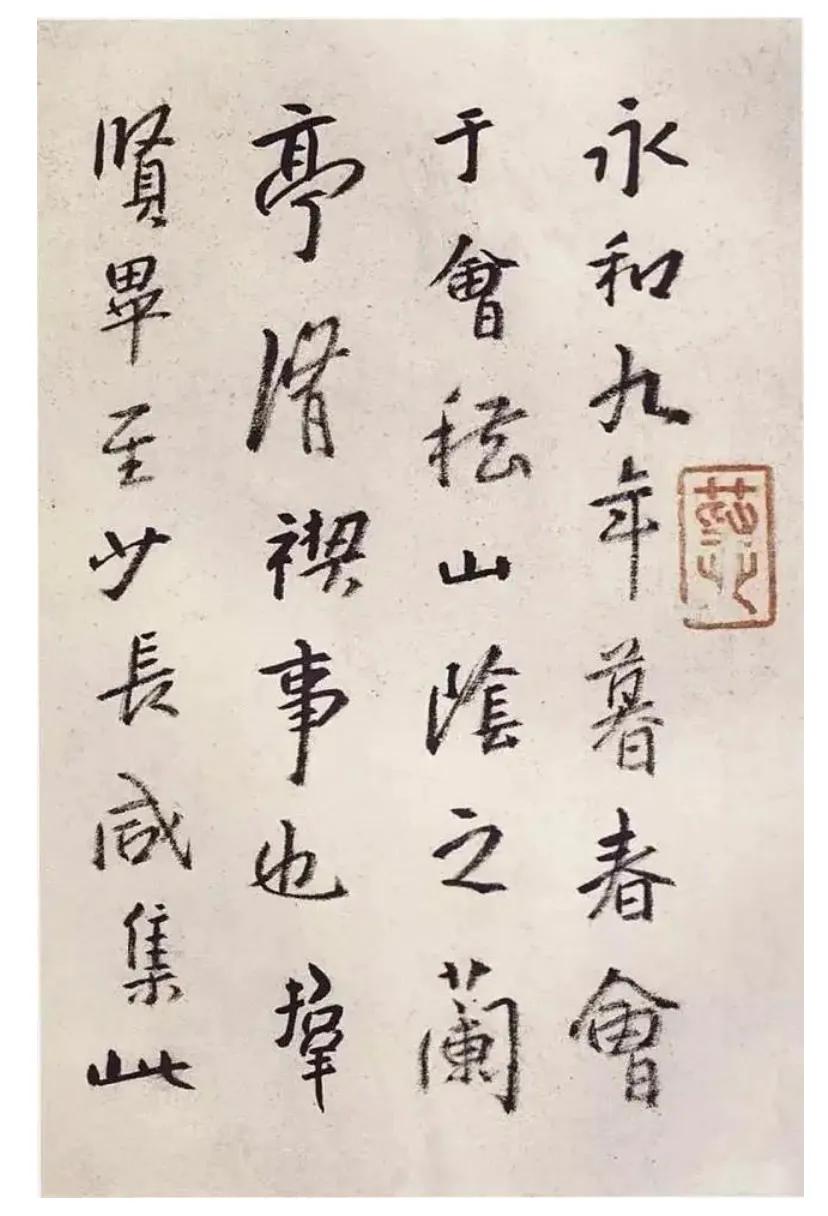 永和九年暮春會
于會嵇山陰之蘭
亭脩禊事也羣
賢畢至少長咸集此